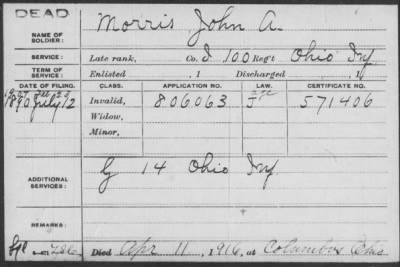 DEAD
NAME OF SOLDIER: Morris John A.
SERVICE: Late rank, Co. I 100 Reg't Ohio Inf
TERM OF SERVICE: Enlisted , 1 Discharged , 1
DATE OF FILING. CLASS. APPLICATION NO. LAW. CERTIFICATE NO.
1890 July 12 Invalid, 806063 J 571406
Widow,
Minor,
ADDITIONAL SERVICES: G 14 Ohio Inf
REMARKS:
Died Apr 11, 1916, at Columbus Ohio